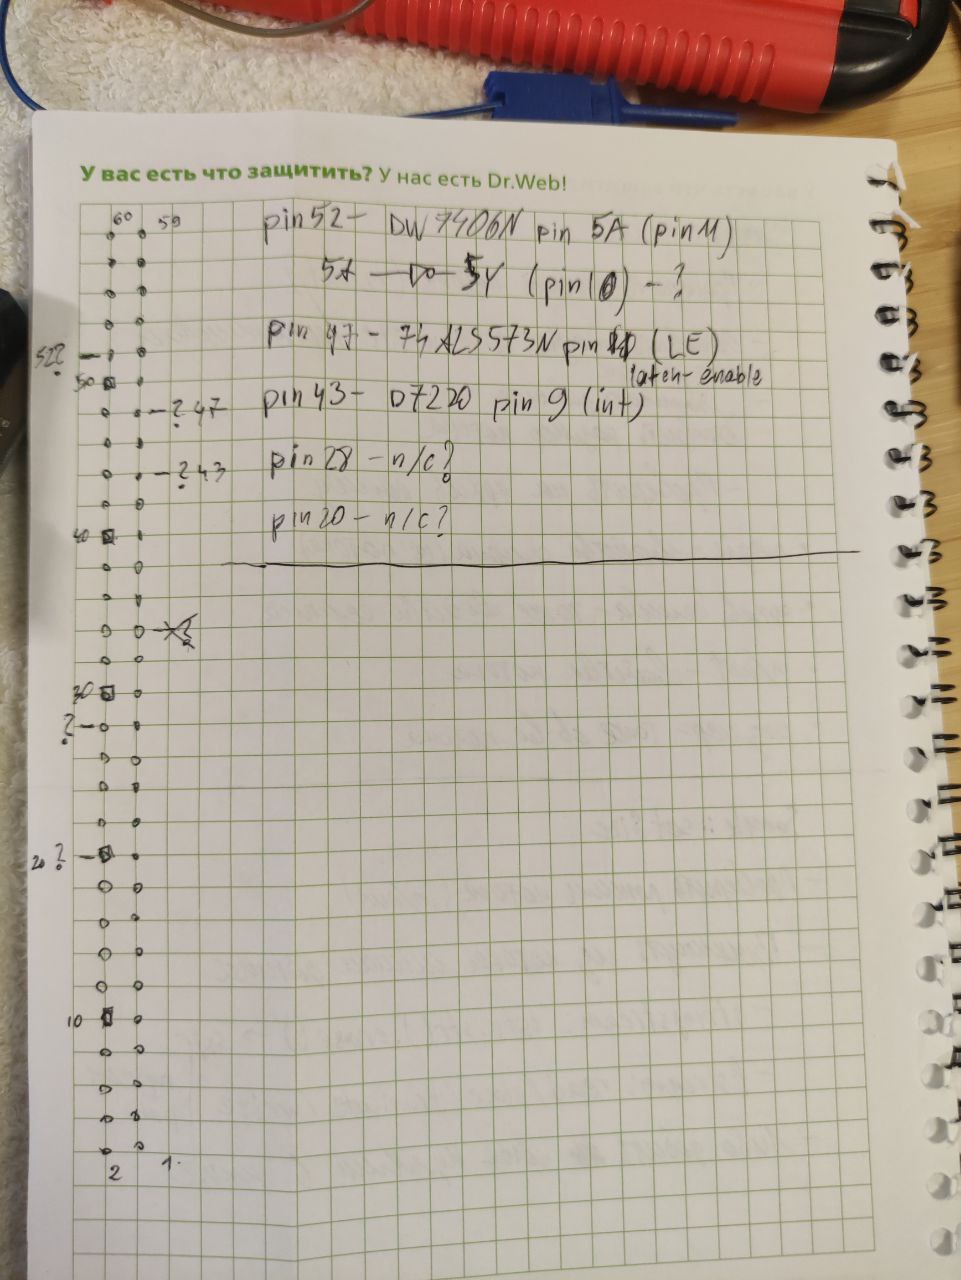 У вас есть что защитить? У нас есть Dr.Web!
60 59 pin 52 - DW 7406N pin 5A (pin 11)
5A 5Y (pin 10) - ?
52? pin 47 - 74ALS573N pin (LE)
latch-enable
50
? 47 pin 43 - D7220 pin 9 (int)
? 43 pin 28 - n/c?
pin 20 - n/c?
40
30
?
20 ?
10
2 1